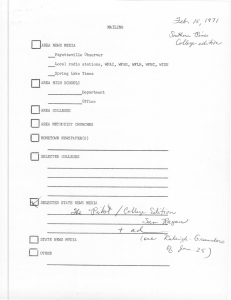 Feb. 15, 1971
MAILING
Southern Pines
College edition
AREA NEWS MEDIA
Fayetteville Observer
Local radio stations, WFAI, WFNC, WFLB, WFBS, WIDU
Spring Lake Times
AREA HIGH SCHOOLS
Department
Office
AREA COLLEGES
AREA METHODIST CHURCHES
HOMETOWN NEWSPAPER(S)
SELECTED COLLEGES
SELECTED STATE NEWS MEDIA
The Pilot / College Edition
+ ad
STATE NEWS MEDIA
(one Raleigh-Greensboro
of Jan. 25)
OTHER